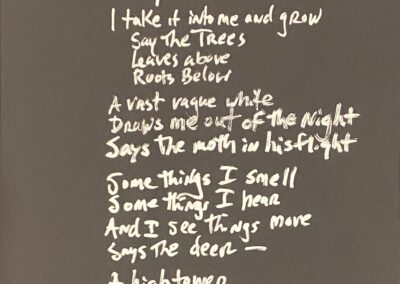 I take it into me and grow
Say The Trees
Leaves above
Roots Below
A vast vague white
Draws me out of the Night
Says the moth in his flight
Some things I smell
Some things I hear
And I see things move
Says The deer —
A high tower